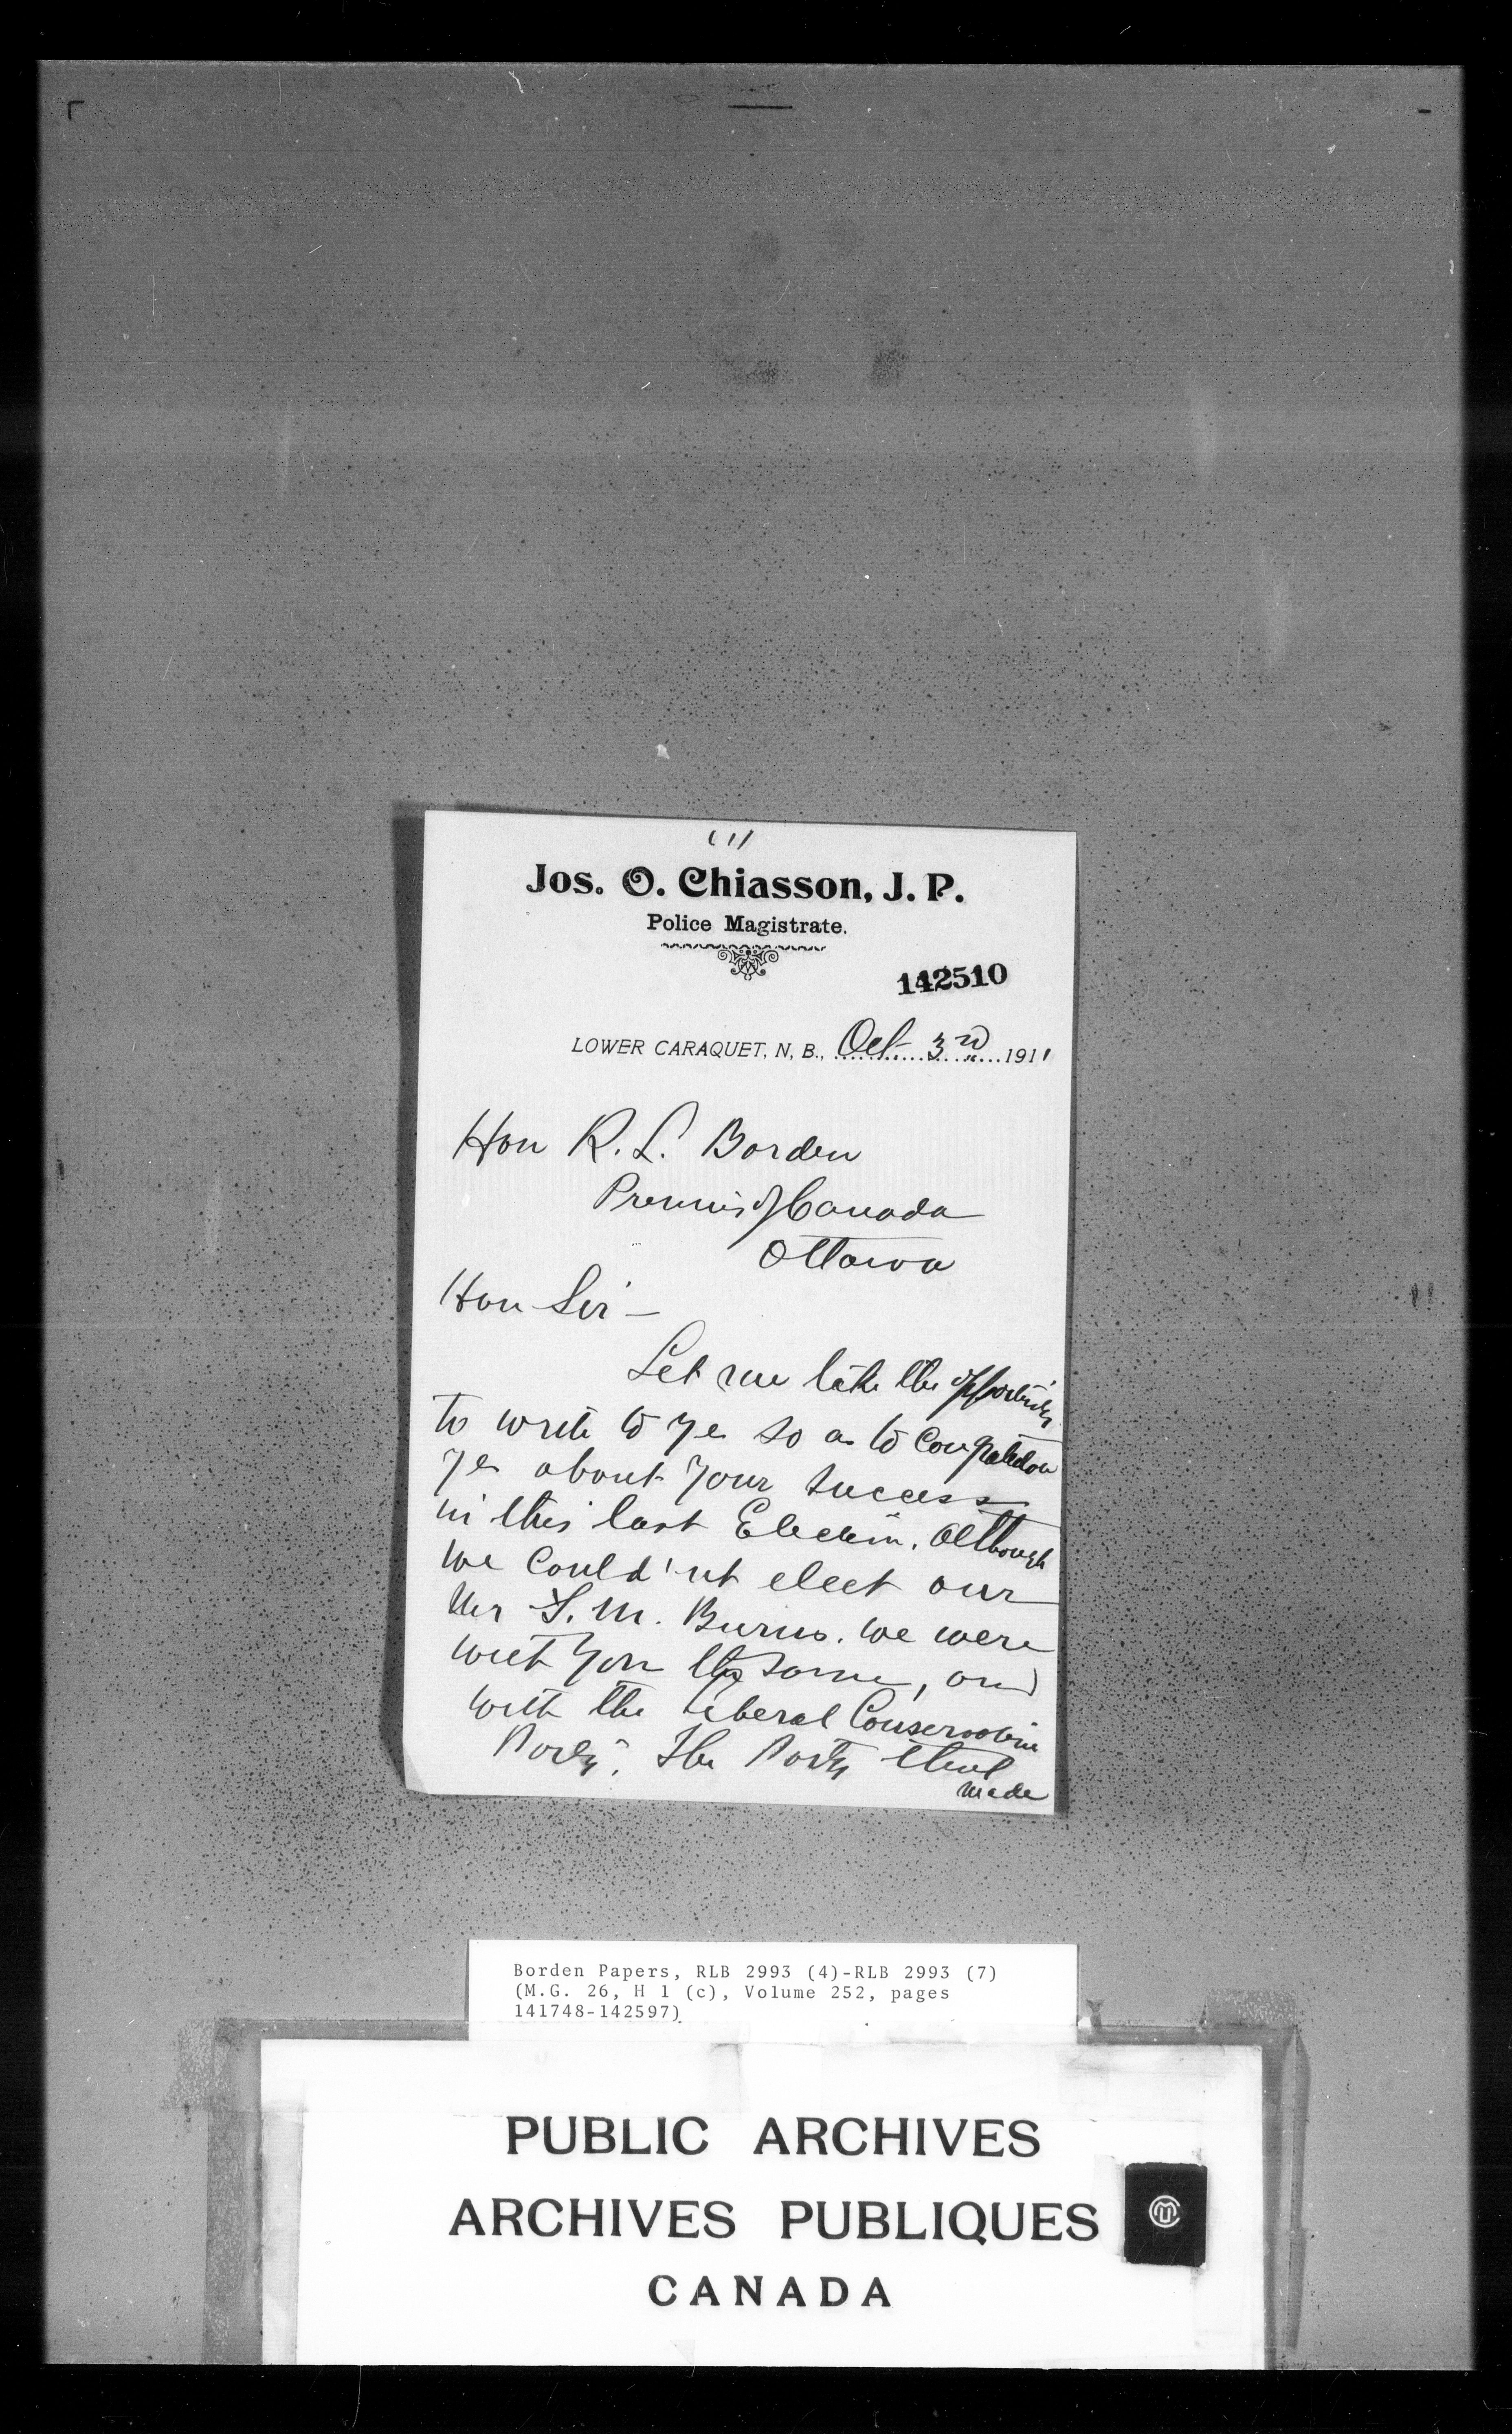 (1)
Jos. O. Chiasson, J. P.
Police Magistrate.
142510
LOWER CARAQUET, N. B., Oct 3rd 1911
Hon R. L. Borden
Premier of Canada
Ottawa
Hon Sir –
Let me take the opportunity
to write to ye so as to
ye about your success
in this last Election. Although
we could'nt elect our
Mr. M. Burns. we were
with you the same, and
with the Liberal Conservative
Party. The Party that
made
Borden Papers, RLB 2993 (4)-RLB 2993 (7)
(M.G. 26, H 1 (c), Volume 252, pages
141748-142597)
PUBLIC ARCHIVES
ARCHIVES PUBLIQUES
CANADA